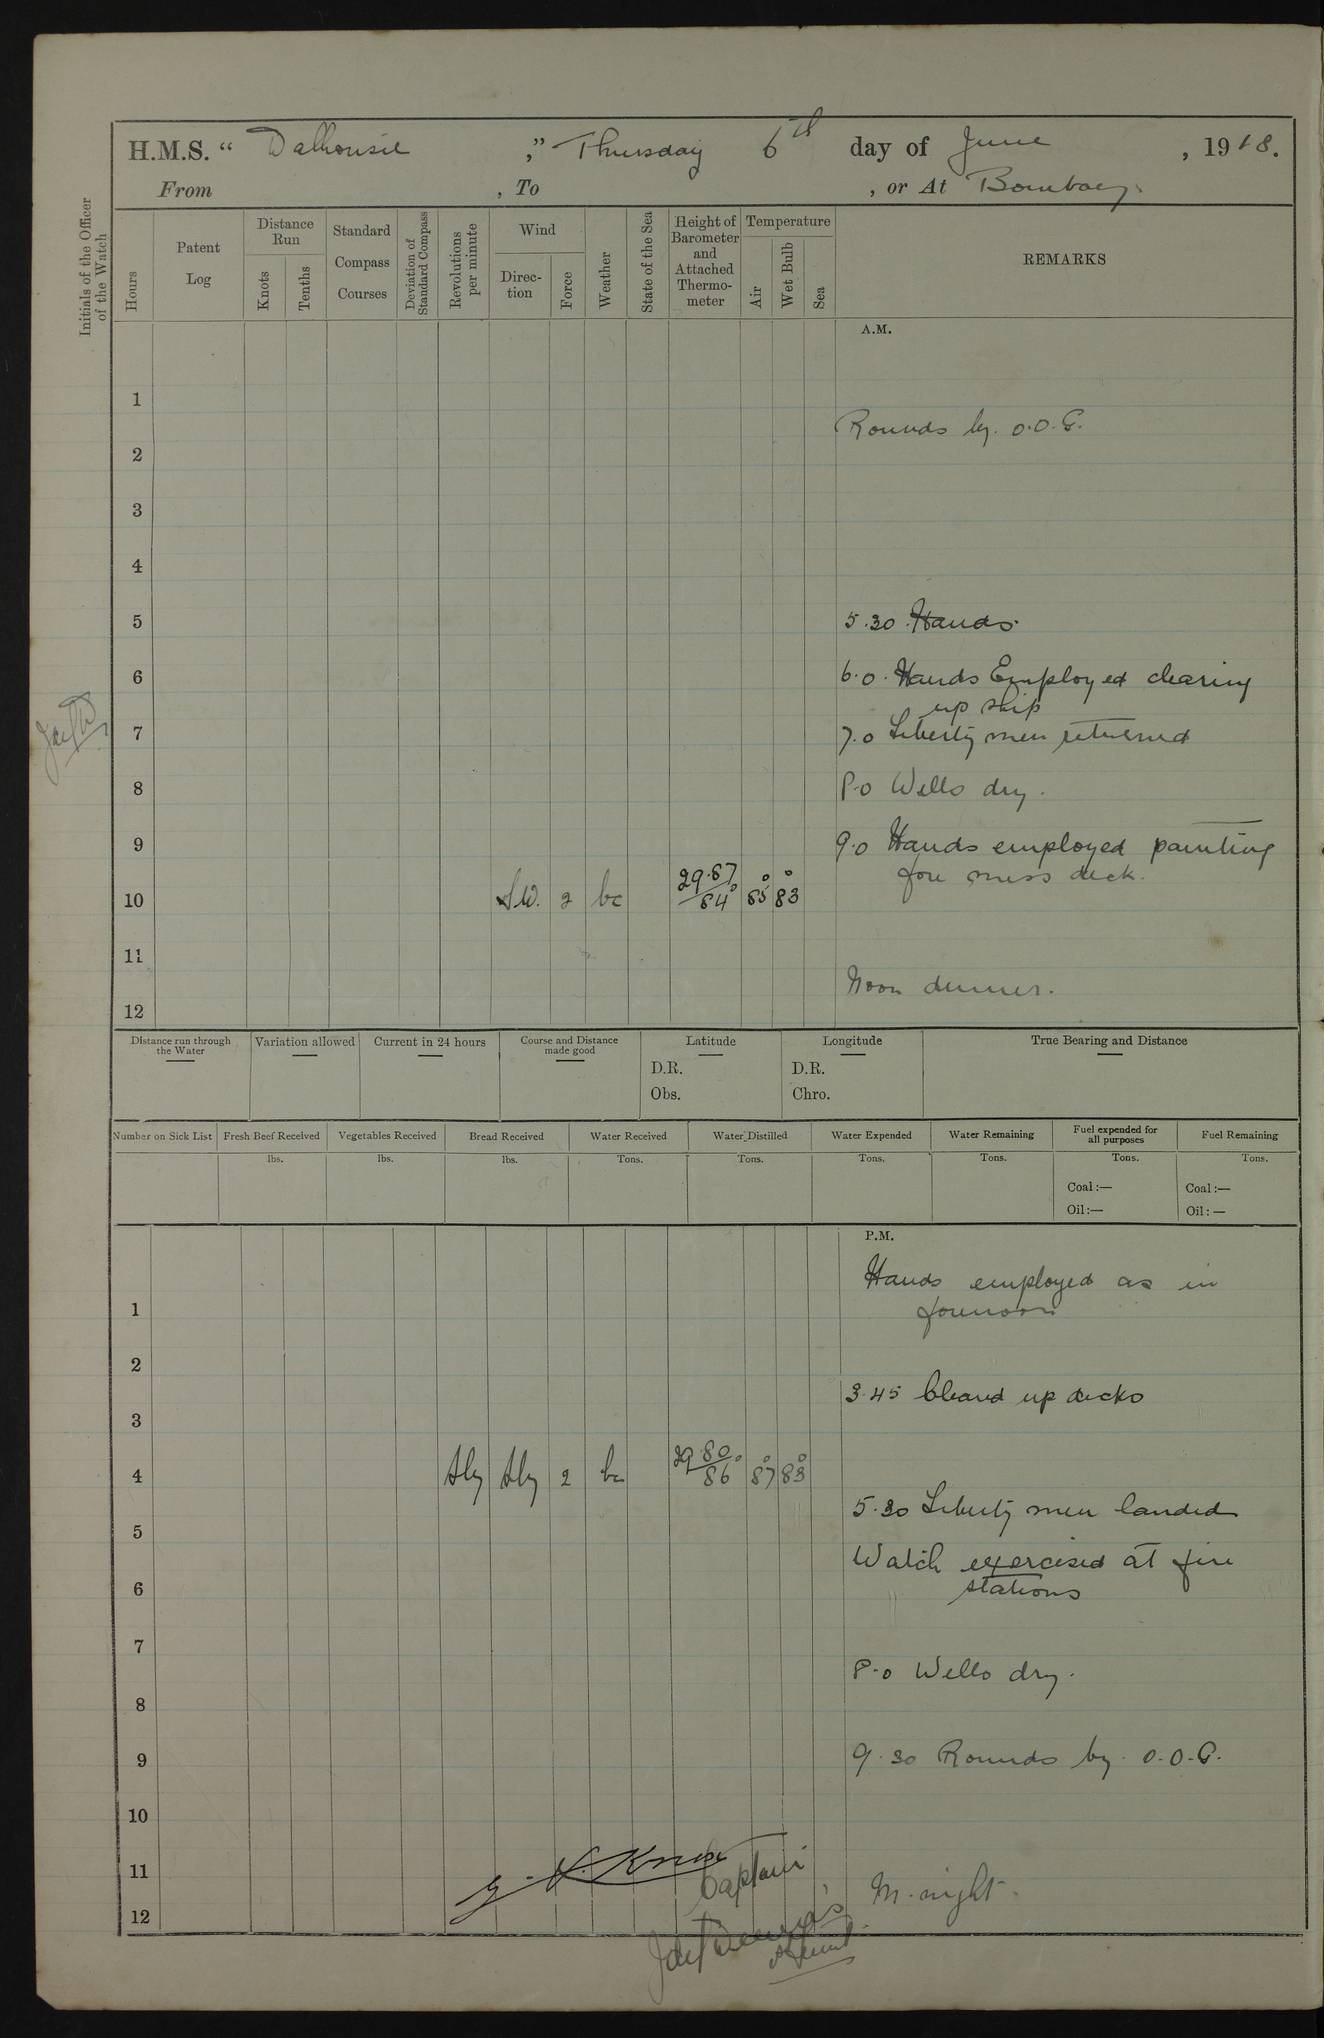 H.M.S. “ Dalhousie ,” Thursday 6th day of June , 1918.
From , To , or At Bombay.
Initials of the Officer of the Watch
Hours
Patent Log
Distance Run
Knots
Tenths
Standard Compass Courses
Deviation of Standard Compass
Revolutions per minute
Wind
Direc-tion
Force
Weather
State of the Sea
Height of Barometer and Attached Thermo-meter
Temperature
Air
Wet Bulb
Sea
REMARKS
A.M.
1
Rounds by. O.O.G.
2
3
4
5 5.30 Hands.
6 6.0. Hands Employed clearing
up ship
7 7.0 Liberty men returned
8 8.0 Wells dry.
9 9.0 Hands employed painting
fore mess deck.
10 SW. 2 bc 29.87 84° 85° 83°
11
Noon dinner.
12
Distance run through the Water
Variation allowed
Current in 24 hours
Course and Distance made good
Latitude
D.R.
Obs.
Longitude
D.R.
Chro.
True Bearing and Distance
Number on Sick List
Fresh Beef Received
lbs.
Vegetables Received
lbs.
Bread Received
lbs.
Water Received
Tons.
Water Distilled
Tons.
Water Expended
Tons.
Water Remaining
Tons.
Fuel expended for all purposes
Tons.
Coal :—
Oil :—
Fuel Remaining
Tons.
Coal :—
Oil : —
P.M.
Hands employed as in
1 forenoon
2
3.45 Cleared up decks
3
4 2 bc 29.80 86° 87° 83°
5.30 Liberty men landed
5
Watch exercised at fire
6 stations
7
8.0 Wells dry.
8
9 9.30 Rounds by. O.O.G.
10
11
Captain
M. night.
12